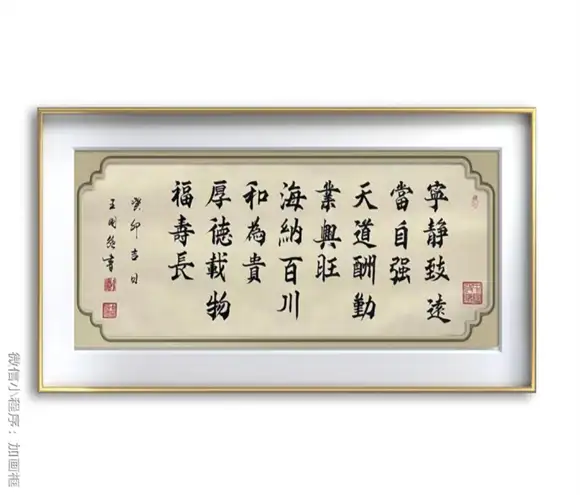 寧靜致遠
當自强
天道酬勤
業興旺
海納百川
和為貴
厚德載物
福壽長
癸卯吉日
王国書
微信小程序：加画框